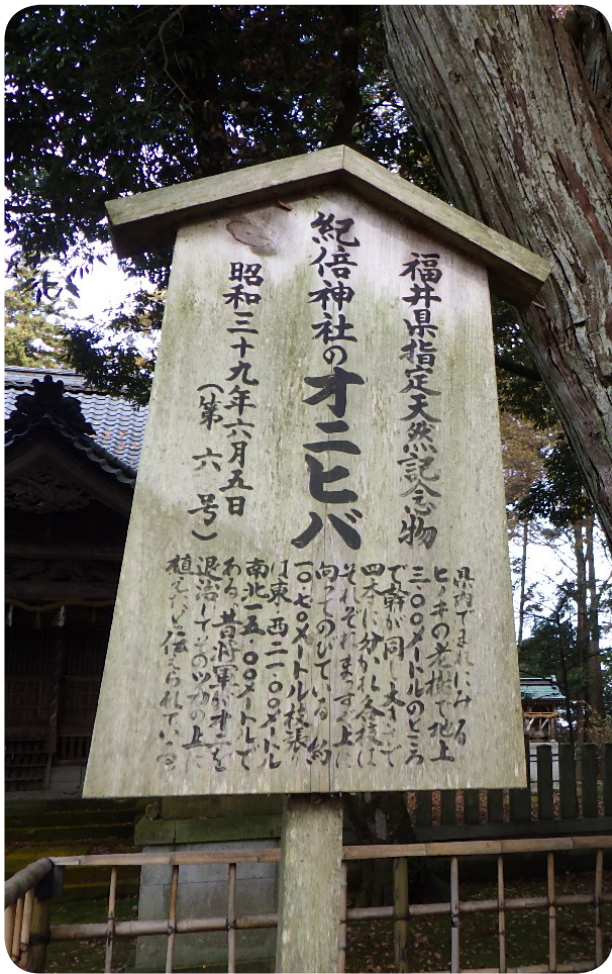 福井県指定天然記念物
紀倍神社のオニヒバ
昭和三十九年六月五日
（第六号）
県内でまれにみる
ヒノキの老樹で地上
三・〇〇メートルのところ
で幹が同じ大きさで
四本に分かれ各枝は
それぞれまっすぐ上に
向ってのびている 約
一〇・七〇メートル枝張り
は東西二一・〇〇メートル
南北一五・〇〇メートルで
ある 昔将軍がオニを
退治してそのツカの上に
植えたと伝えられている